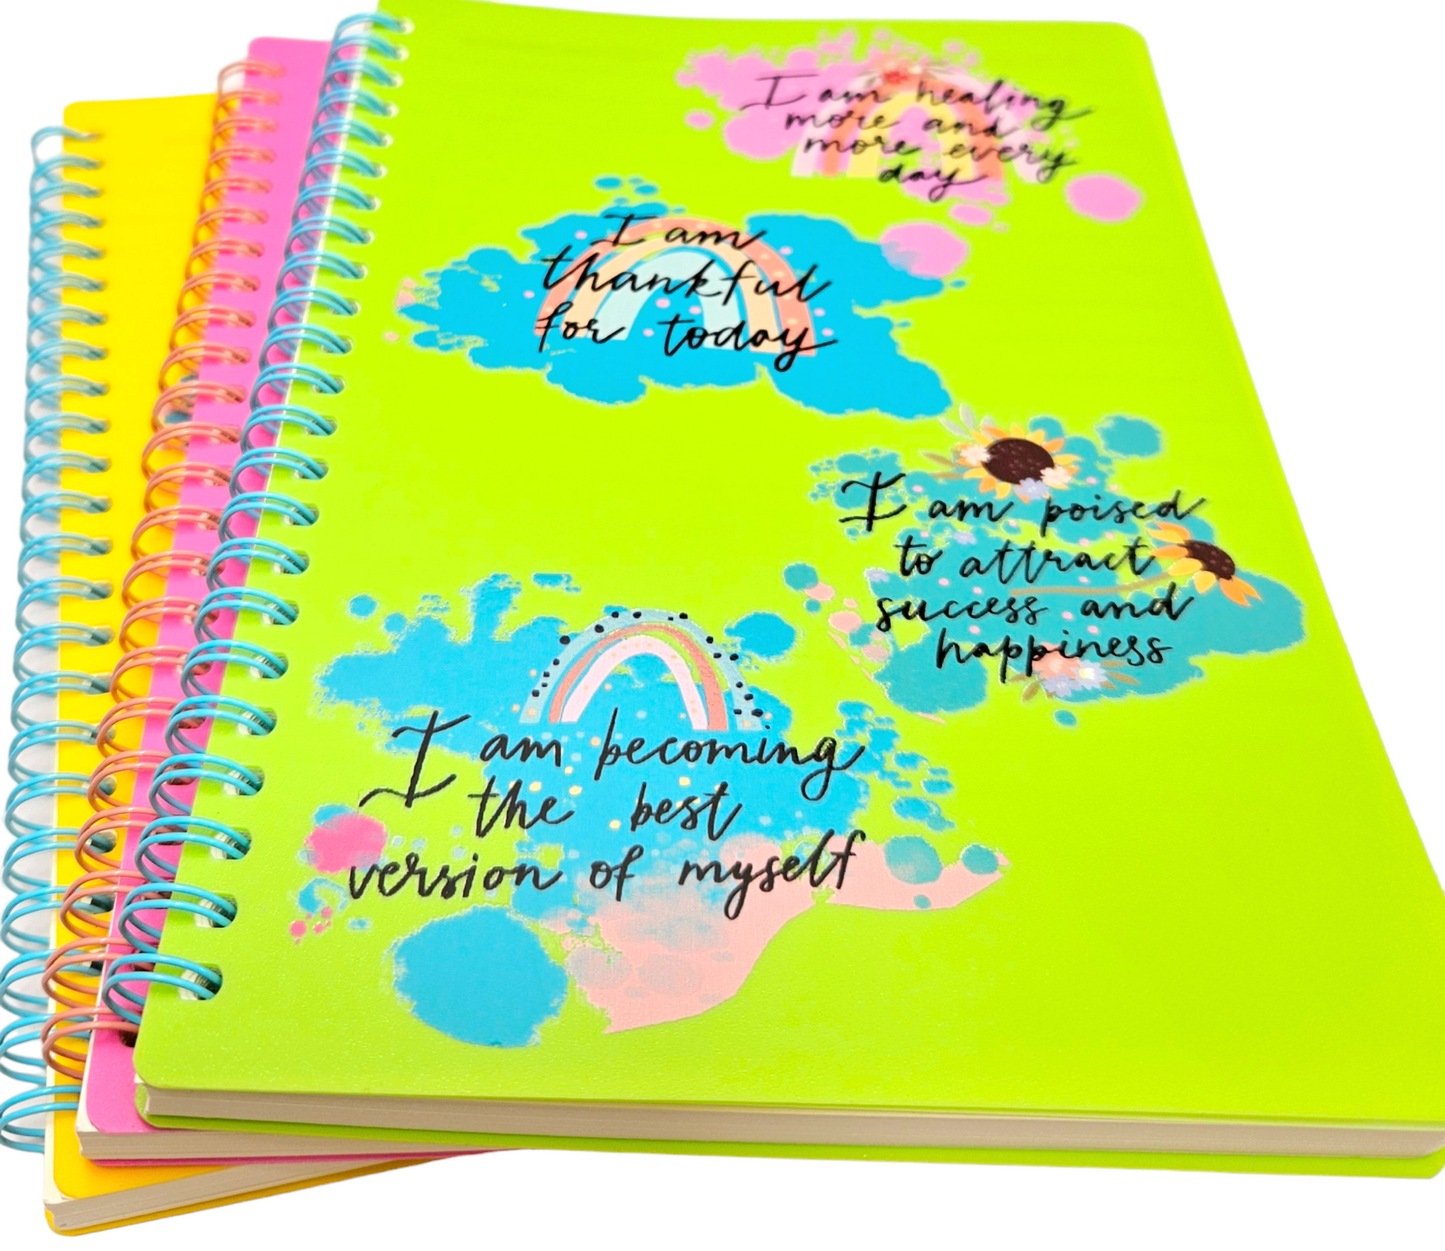 I am healing
more and
more every
day
I am
thankful
for today
I am poised
to attract
success and
happiness
I am becoming
the best
version of myself